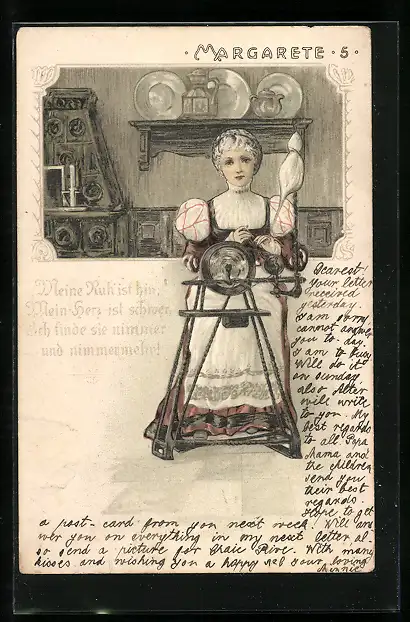 · MARGARETE · 5 ·
"Meine Ruh' ist hin,
Mein Herz ist schwer,
Ich finde sie nimmer
und nimmermehr!"
Dearest
your letter
received
yesterday.
I am sorry
cannot answer
you to-day.
I am to busy
Will do it
on sunday
also
will write
to you. My
best regards
to all Papa
Mama and
the children
send you
their best
regards.
Hope to get
a post-card from you next week. Will ans
wer you on everything in my next letter al-
so send a picture for With many
kisses and wishing you a happy your loving
Minnie